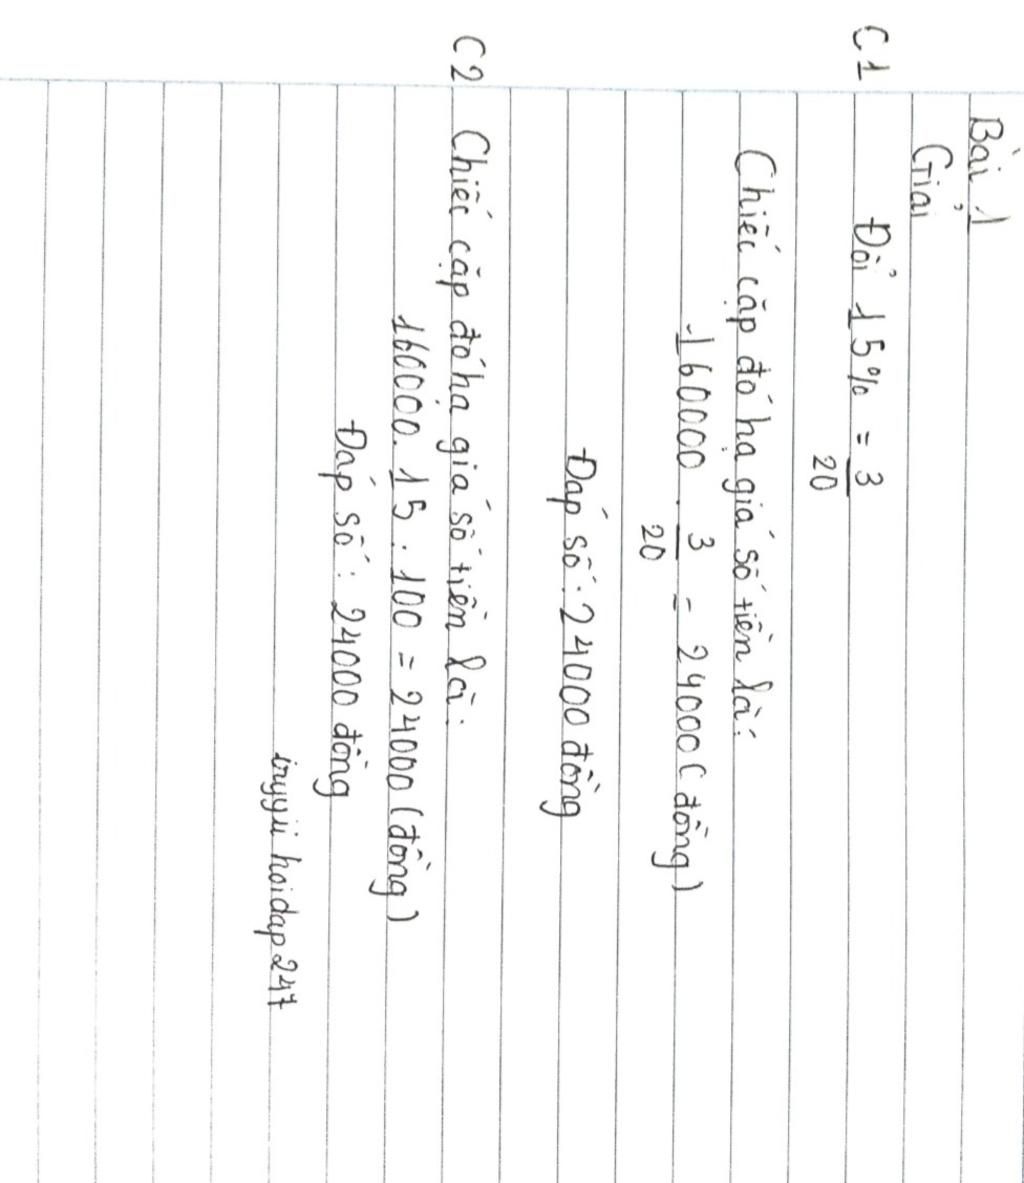 Bài 1
Giải
C1 Đổi 15% = 3/20
Chiếc cặp đó hạ giá số tiền là:
160000 . 3/20 = 24000 (đồng)
Đáp số: 24000 đồng
C2 Chiếc cặp đó hạ giá số tiền là:
160000. 15 : 100 = 24000 (đồng)
Đáp số: 24000 đồng
inyyii hoidap247